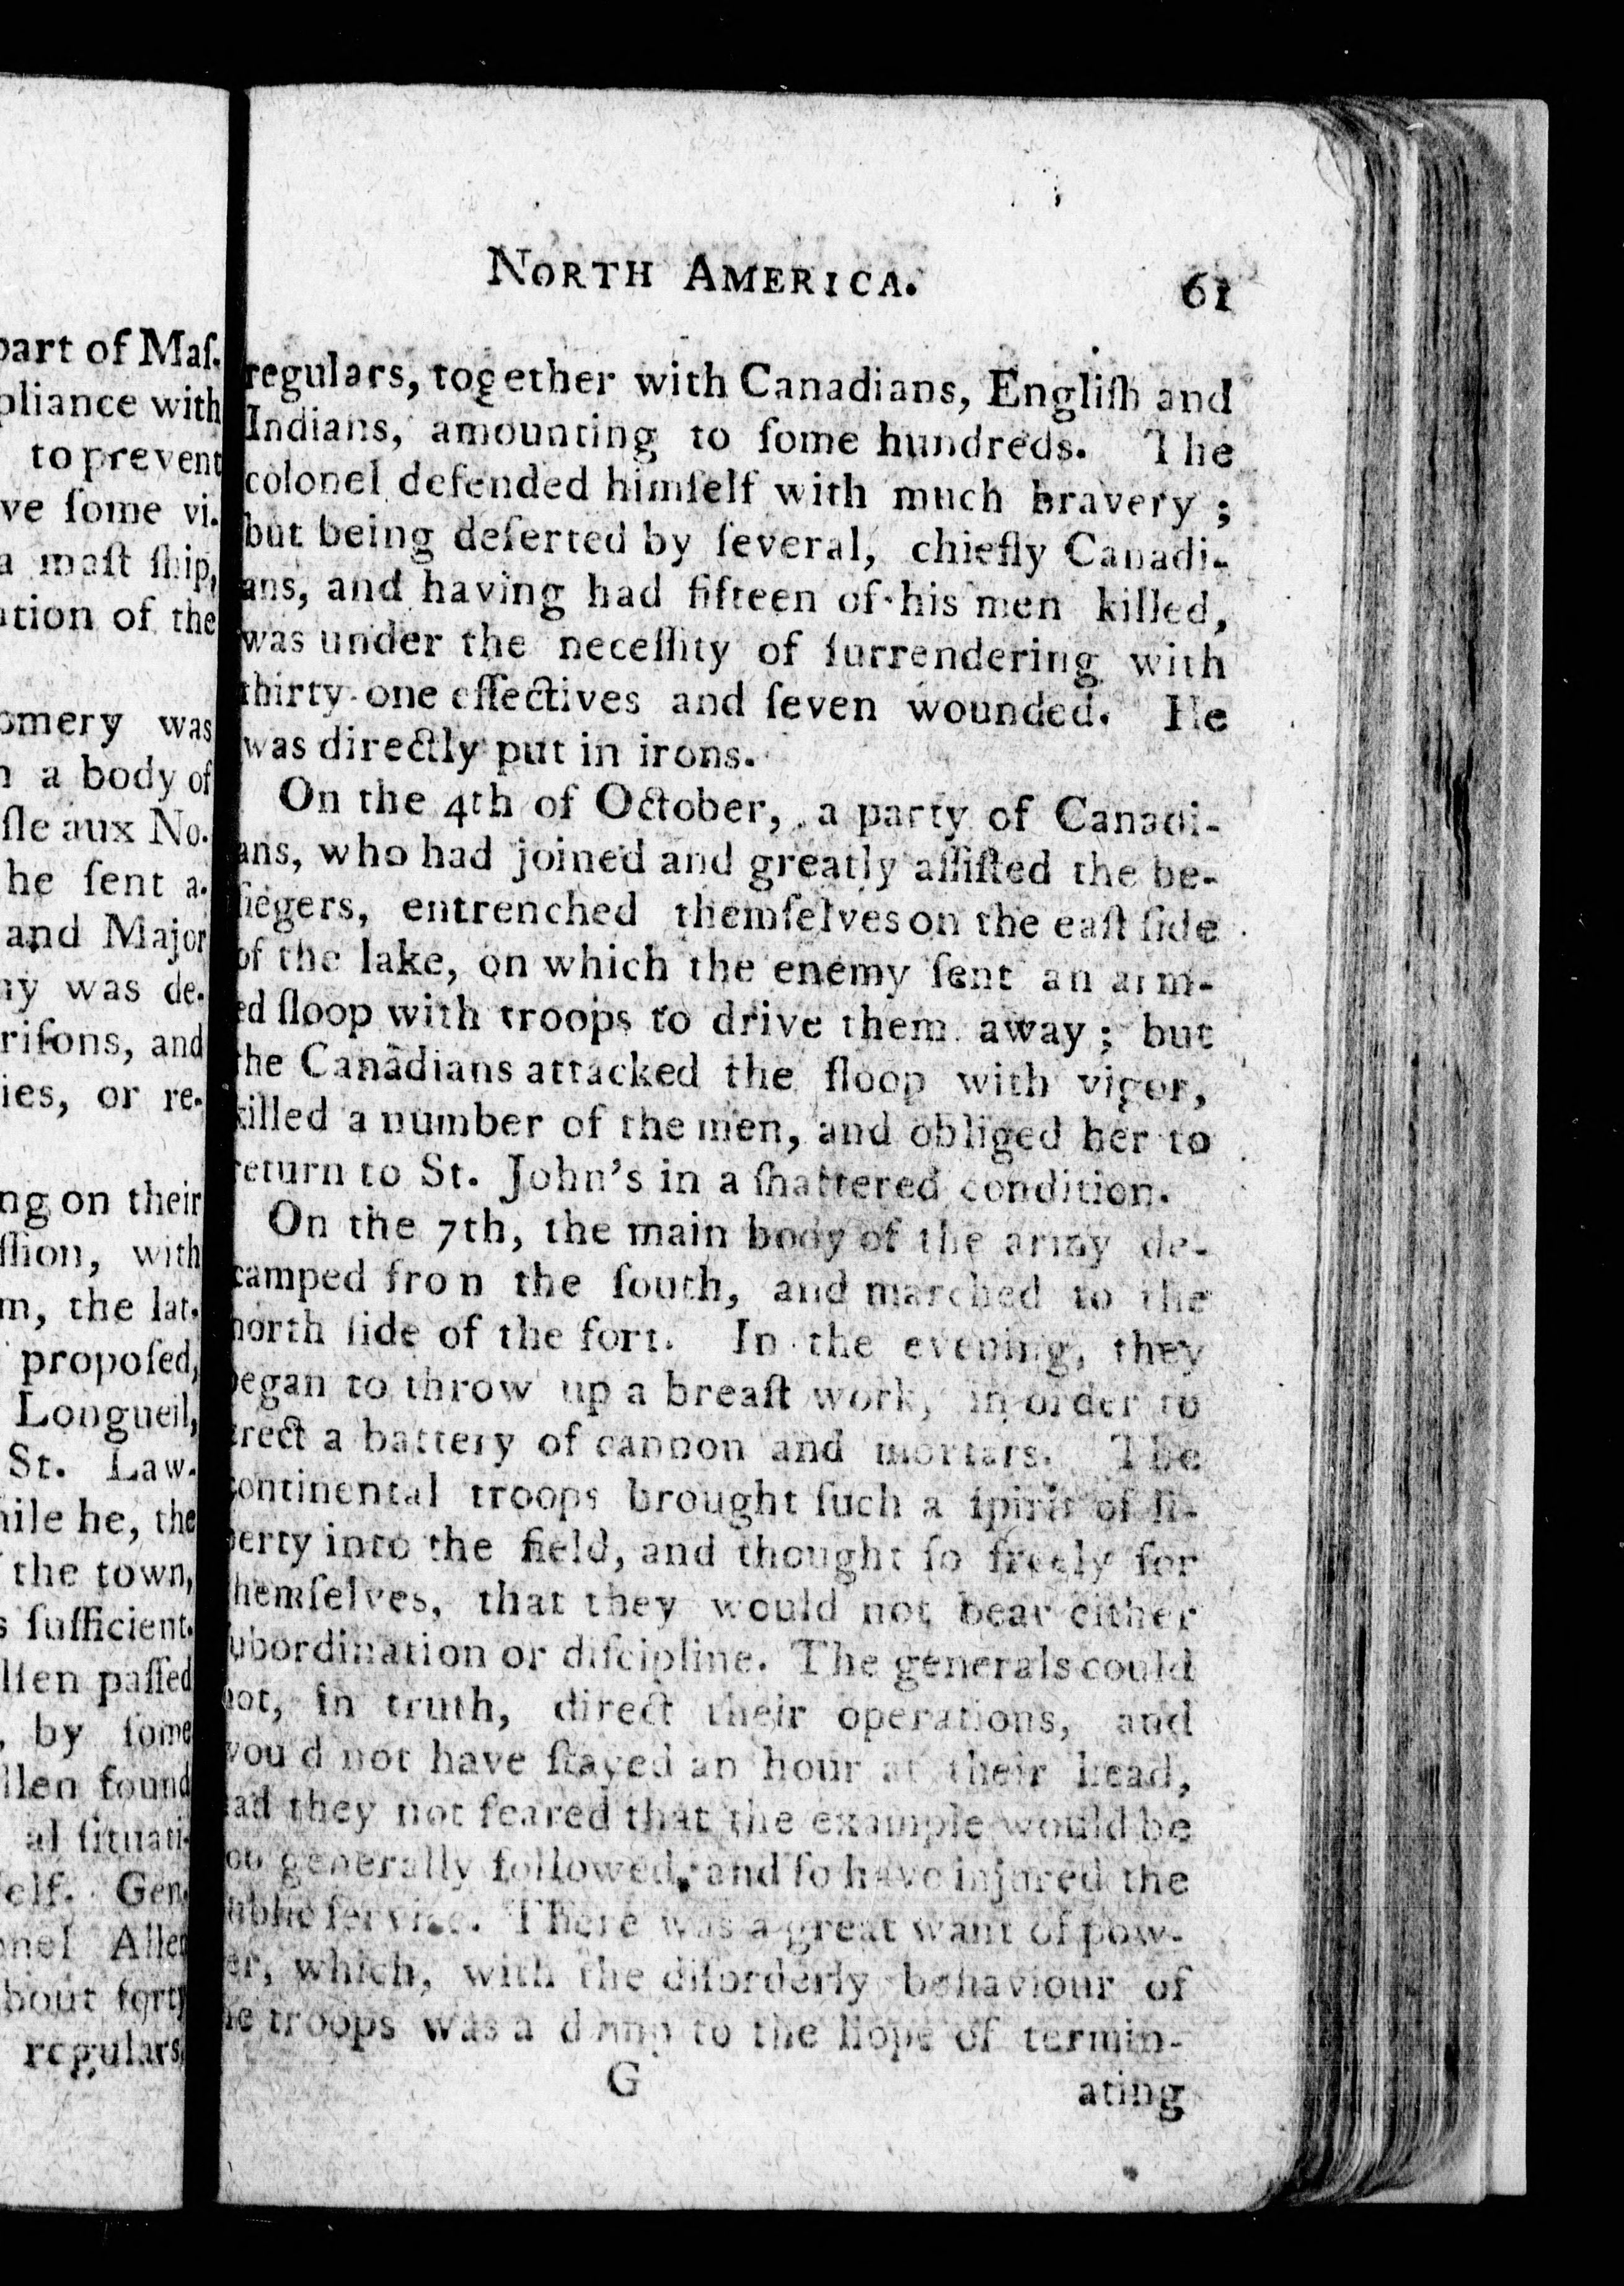 part of Maſ.
pliance with
to prevent
ve ſome vi.
a maſt ſhip,
ation of the
omery was
n a body of
ſle aux No.
he ſent a.
and Major
ny was de.
riſons, and
ies, or re.
ng on their
ſſion, with
m, the lat.
propoſed,
Longueil,
St. Law.
hile he, the
the town,
s ſufficient.
llen paſſed
, by ſome
llen found
al ſituati-
elf. Gen.
onel Allen
bout forty
regulars,
NORTH AMERICA. 61
regulars, together with Canadians, Engliſh and
Indians, amounting to ſome hundreds. The
colonel defended himſelf with much bravery ;
but being deſerted by ſeveral, chiefly Canadi-
ans, and having had fifteen of his men killed,
was under the neceſſity of ſurrendering with
thirty-one effectives and ſeven wounded. He
was directly put in irons.
On the 4th of October, a party of Canadi-
ans, who had joined and greatly aſſiſted the be-
ſiegers, entrenched themſelves on the eaſt ſide
of the lake, on which the enemy ſent an arm-
ed ſloop with troops to drive them away ; but
the Canadians attacked the ſloop with vigor,
killed a number of the men, and obliged her to
return to St. John's in a ſhattered condition.
On the 7th, the main body of the army de-
camped fron the ſouth, and marched to the
north ſide of the fort. In the evening, they
began to throw up a breaſt work, in order to
erect a battery of cannon and mortars. The
continental troops brought ſuch a ſpirit of li-
berty into the field, and thought ſo freely for
themſelves, that they would not bear either
ſubordination or diſcipline. The generals could
not, in truth, direct their operations, and
wou d not have ſtayed an hour at their head,
had they not feared that the example would be
too generally followed, and ſo have injured the
public ſervice. There was a great want of pow-
er, which, with the diſorderly behaviour of
the troops was a damp to the hope of termin-
G ating